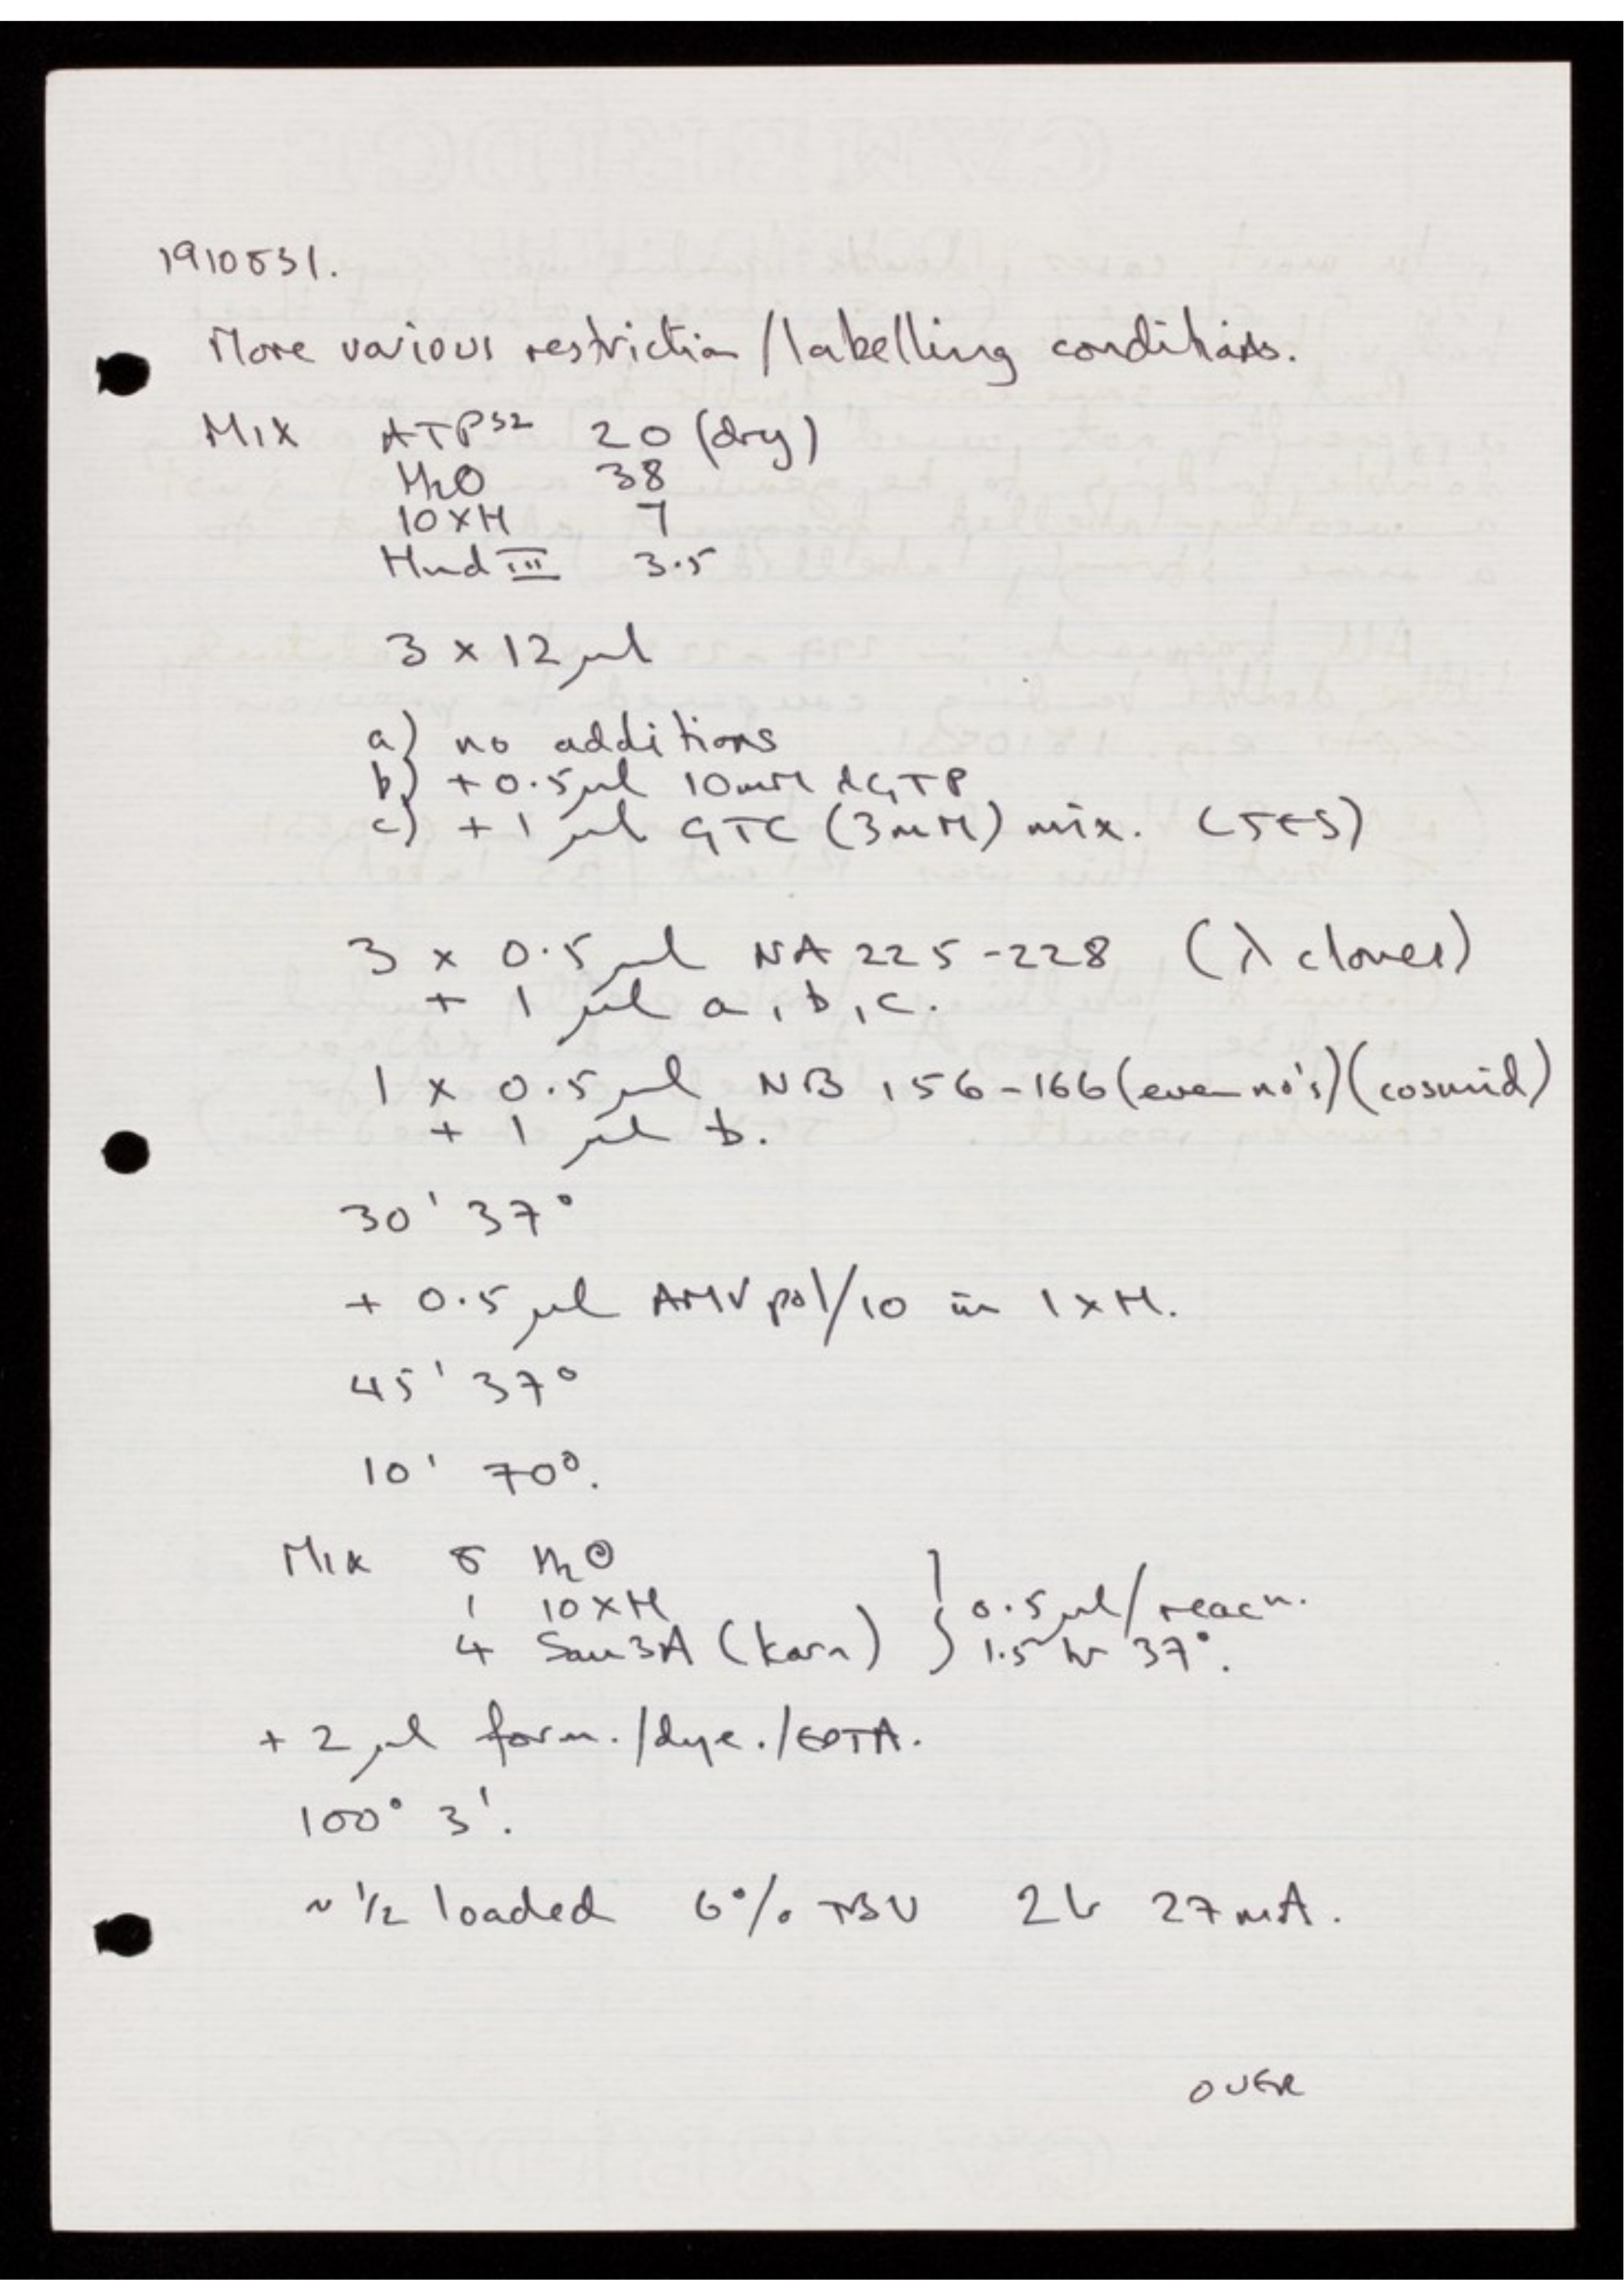 1910831.
More various restriction/labelling conditions.
Mix ATP³² 20 (dry)
H₂O 38
10xH 7
Hind III 3.5
3 x 12 µl
a) no additions
b) + 0.5 µl 10mM dGTP
c) + 1 µl GTC (3mM) mix. (JES)
3 x 0.5 µl NA 225-228 (λ clones)
+ 1 µl a, b, c.
1 x 0.5 µl NB 156-166 (even no's) (cosmid)
+ 1 µl b.
30' 37°
+ 0.5 µl AMV pol/10 in 1xH.
45' 37°
10' 70°.
Mix 5 H₂O
1 10xH
4 Sau3A (Karn) } 0.5 µl/reacn.
1.5 hr 37°.
+ 2 µl form./dye./EDTA.
100° 3'.
~ ½ loaded 6% TBU 2h 27mA.
OVER